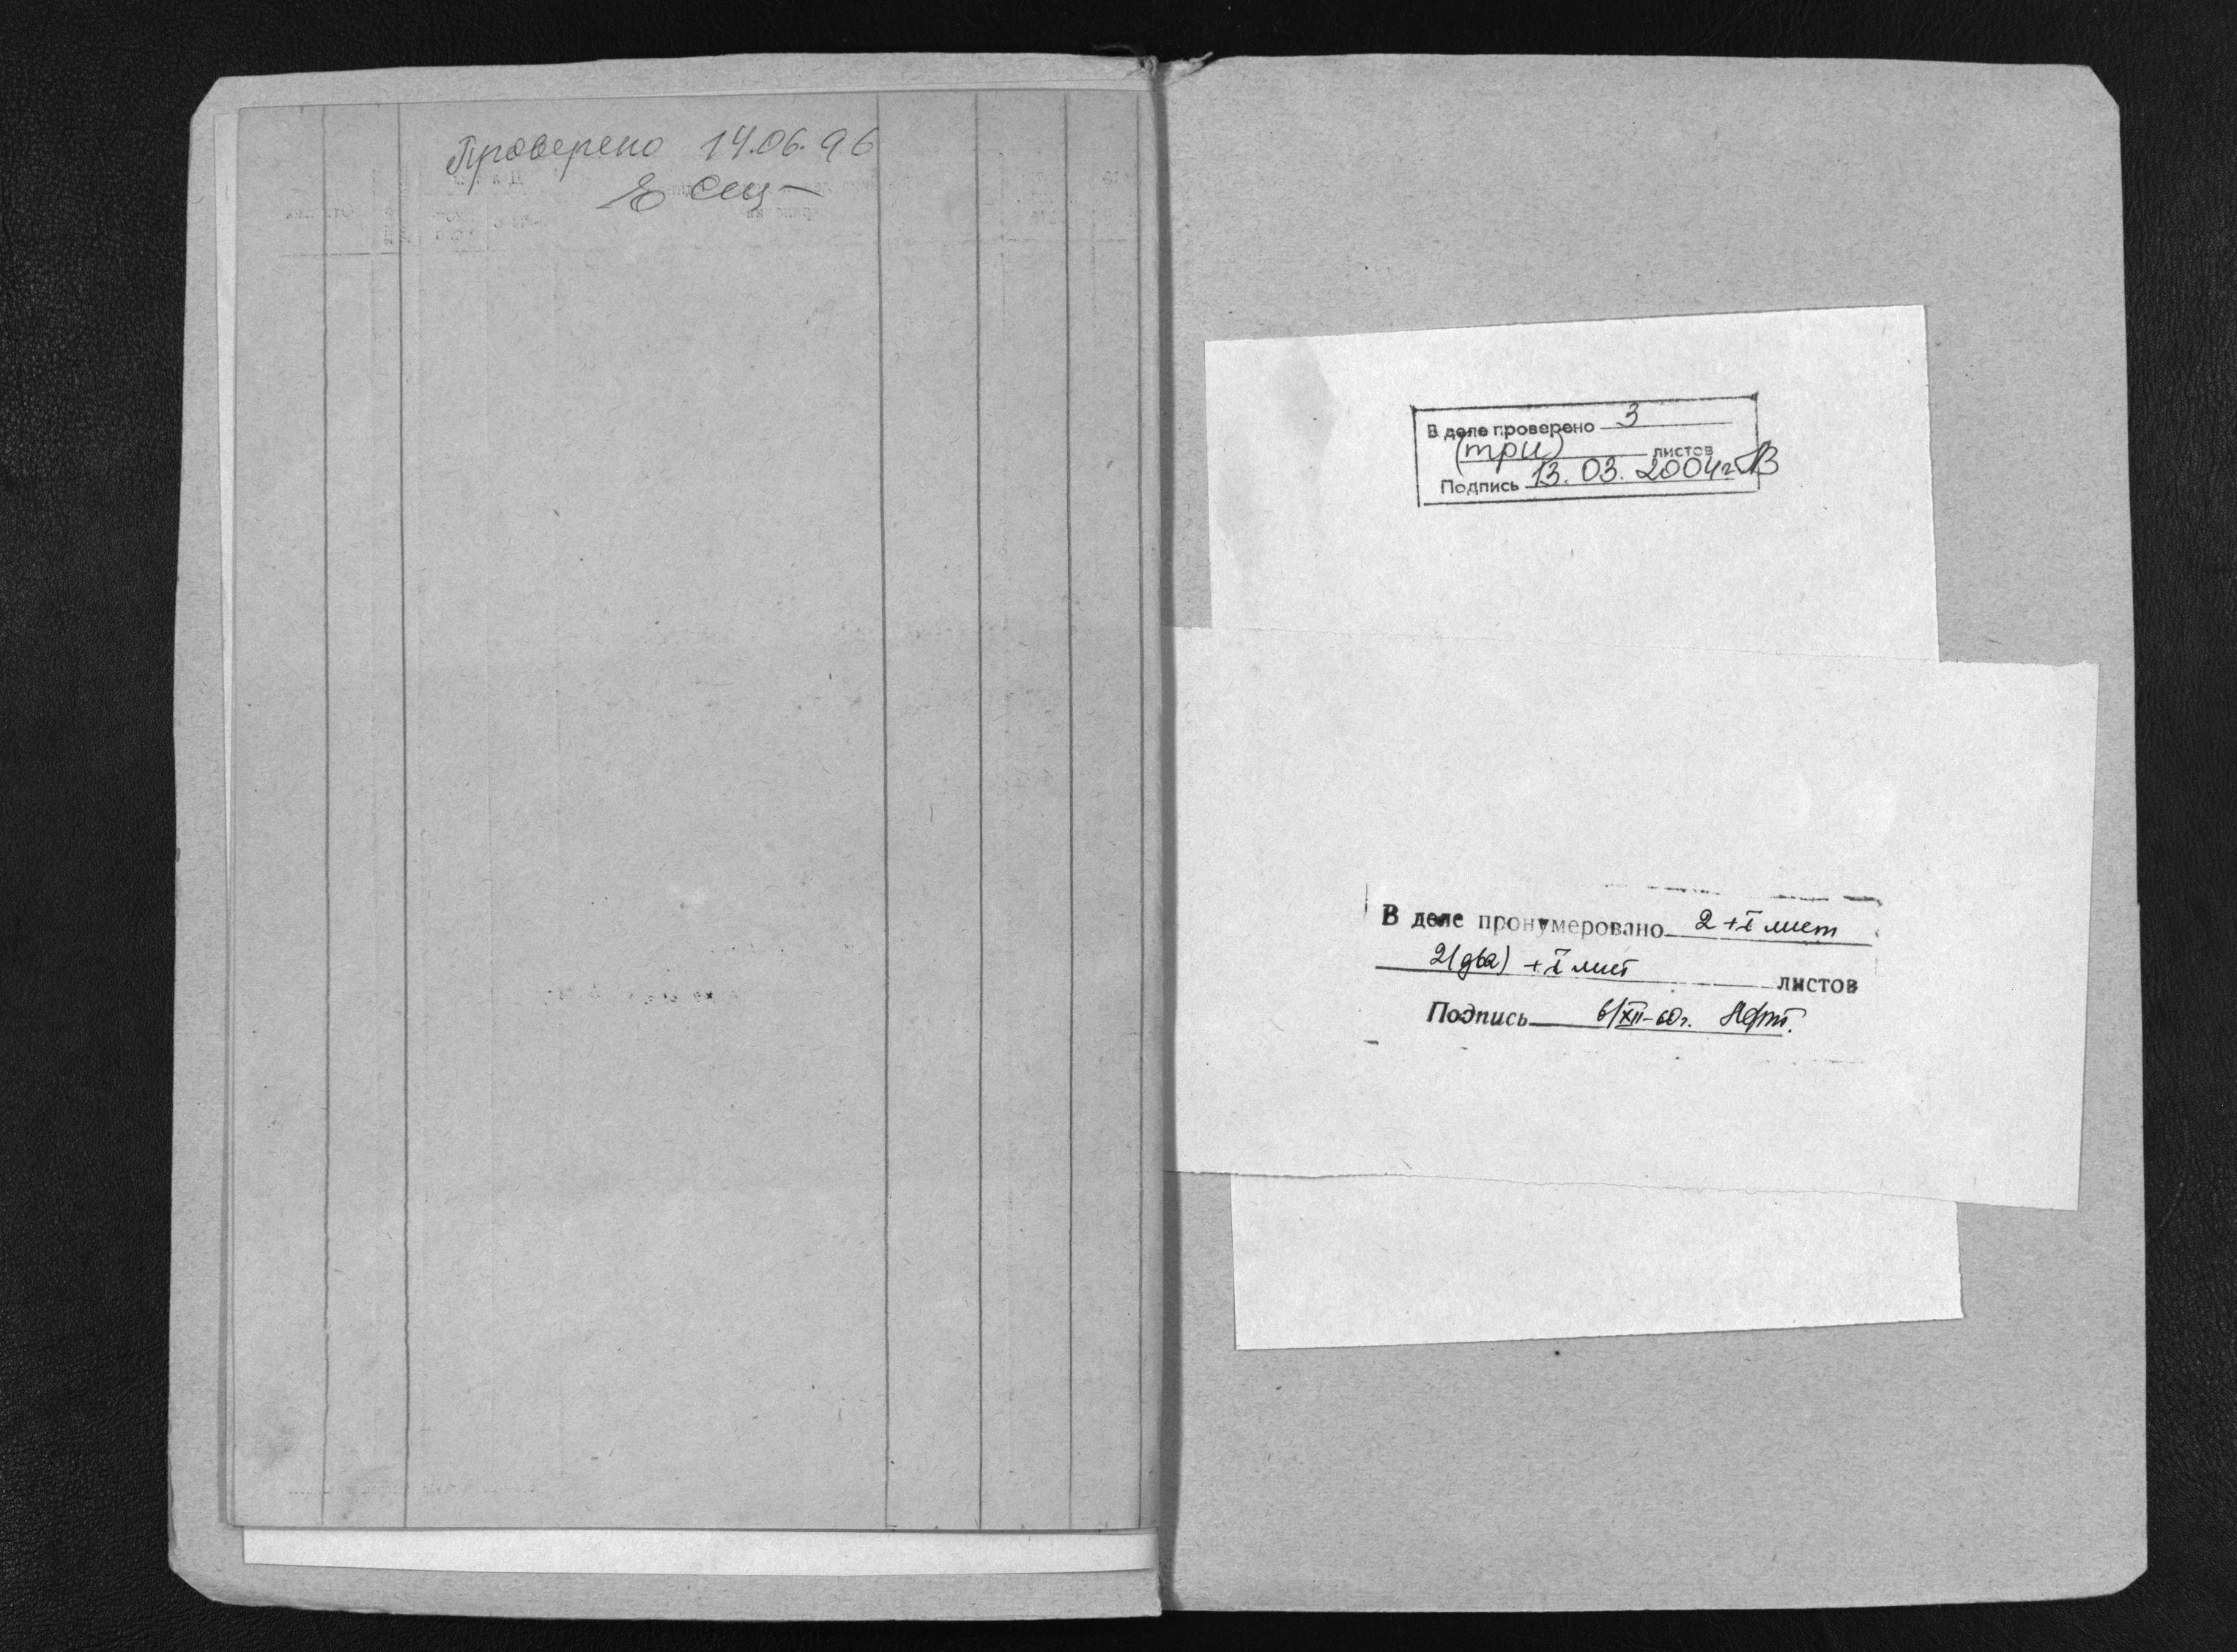 Проверено 14.06.96
В деле проверено 3
(три) листов
Подпись 13.03.2004г.
В деле пронумеровано 2 + I лист
2(два) + I лист листов
Подпись 6/XII-60г.